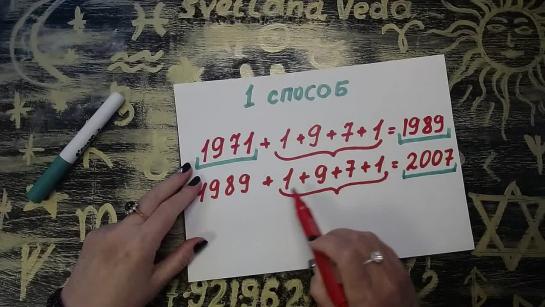 Svetlana Veda
1 способ
1971 + 1+9+7+1 = 1989
1989 + 1+9+7+1 = 2007